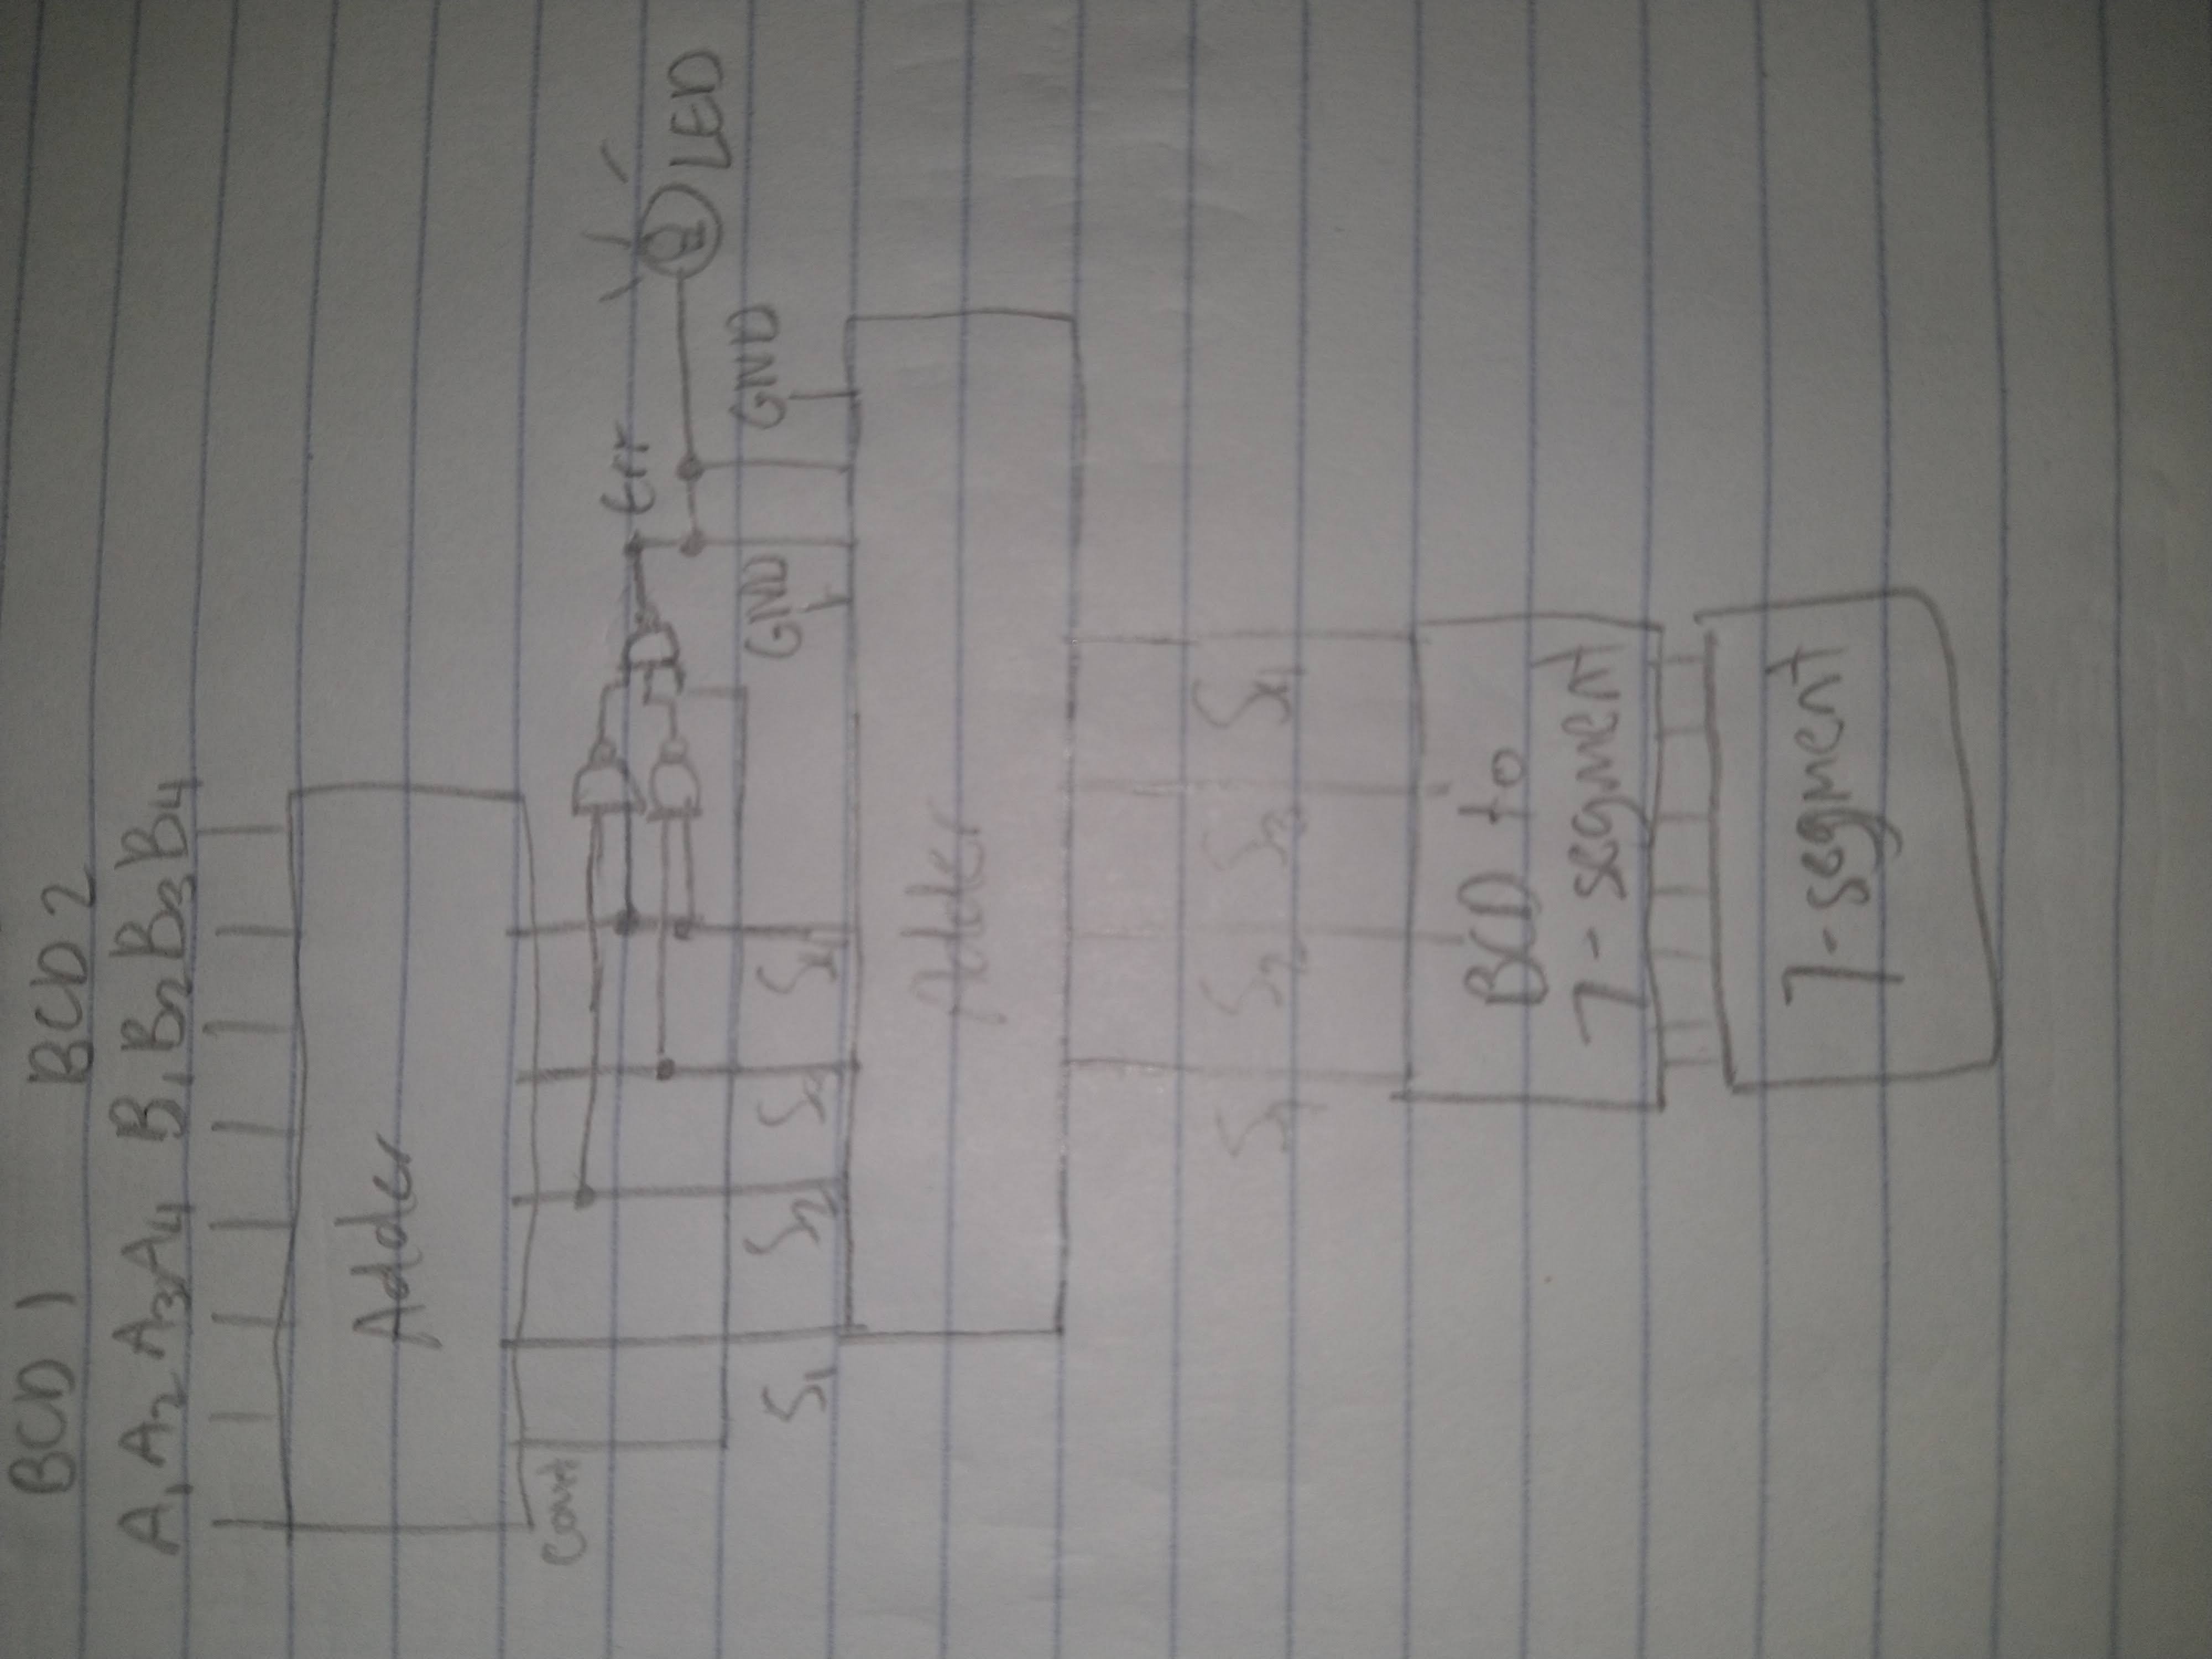 BCD 1 BCD 2
A1 A2 A3 A4 B1 B2 B3 B4
Adder
Cout
Err
LED
S1 S2 S3 S4 GND GND
Adder
S1 S2 S3 S4
BCD to
7-segment
7-segment